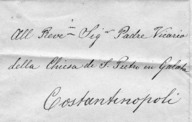 All Revẽ Sigr Padre Vicario
della Chiesa di S. Pietro in Galata
Costantinopoli